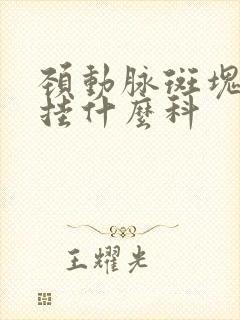 頚動脉斑塊
挂什麽科
王耀光